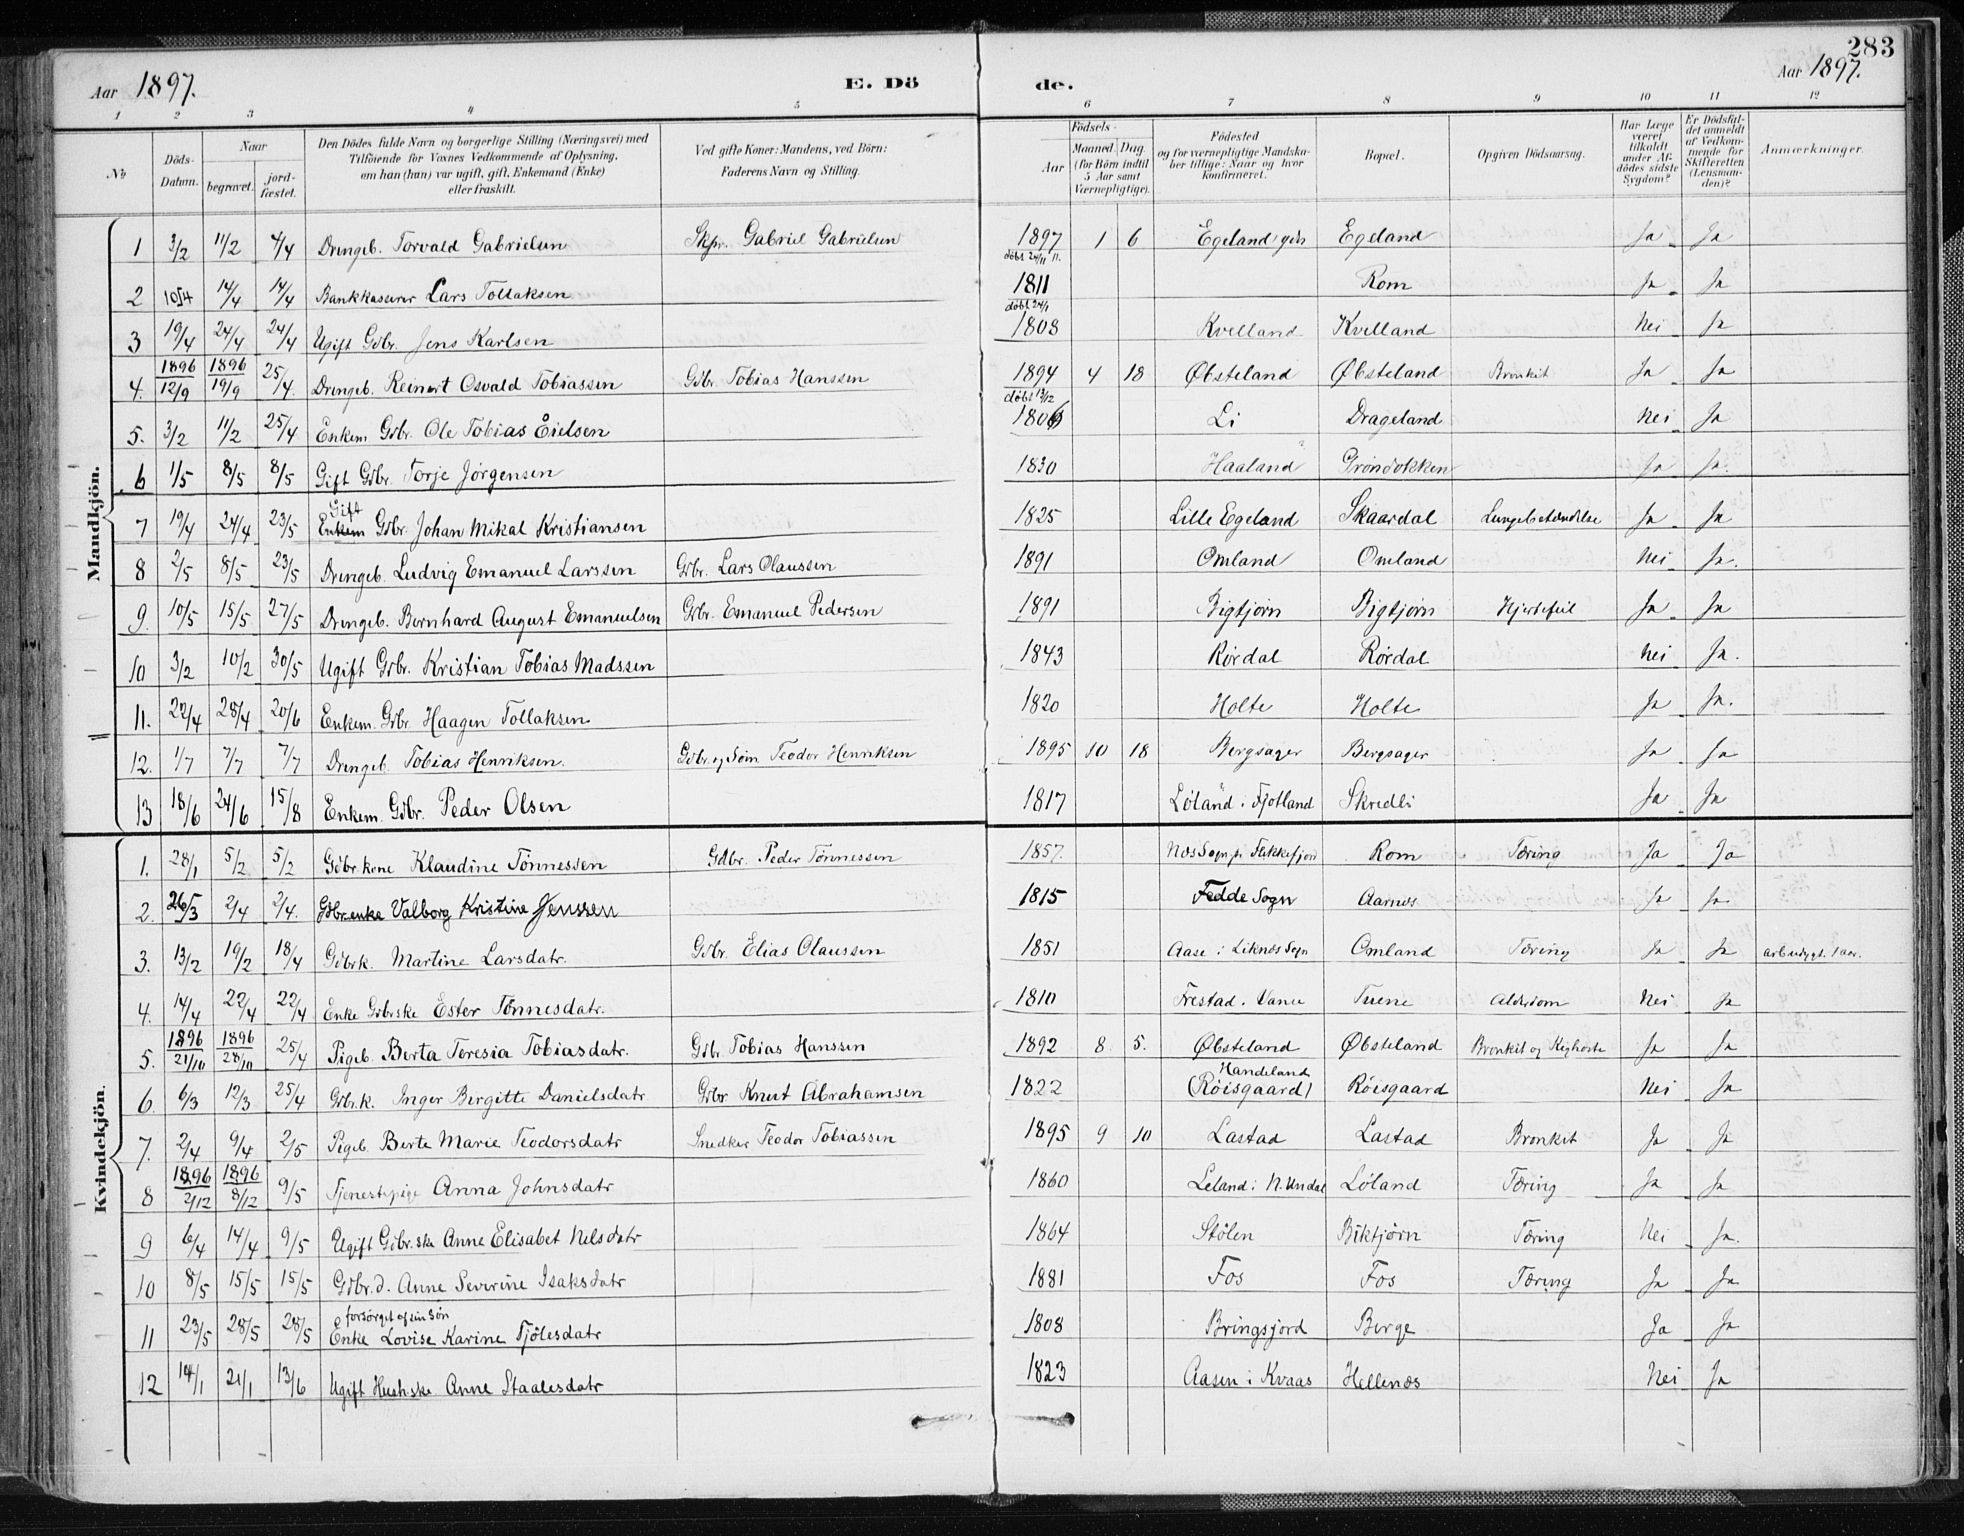 283
Aar 1897. E. Dö de. Aar 1897.
1 2 3 4 5 6 7 8 9 10 11 12
No
Döds-Datum.
Naar
begravet.
jord-fæstet.
Den Dödes fulde Navn og borgerlige Stilling (Næringsvei) med
Tilföiende for Voxnes Vedkommende af Oplysning,
om han (hun) var ugift, gift, Enkemand (Enke)
eller fraskilt.
Ved gifte Koner: Mandens, ved Börn:
Faderens Navn og Stilling.
Födsels-
Aar
Maaned. Dag.
(for Börn indtil
5 Aar samt
Værnepligtige).
Födested
og for værnepligtige Mandska-
ber tillige: Naar og hvor
konfirmeret.
Bopæl.
Opgiven Dödsaarsag.
Har Læge
været
tilkaldt
under Af-
dödes sidste
Sygdom?
Er Dödsfal-
det anmeldt
af Vedkom-
mende for
Skifteretten
(Lensman-
den)?
Anmærkninger.
Mandkjön.
1 3/2 11/2 4/4 Drengeb. Torvald Gabrielsen Skpr. Gabriel Gabrielsen 1897 1 6 Egeland Egeland Ja Ja
döbt 24/11 11.
2 10/4 14/4 14/4 Bankkasserer Lars Tollaksen 1811 Rom Ja Ja
döbt 24/1
3 19/4 24/4 24/4 Ugift Gdbr. Jens Karlsen 1808 Kvelland Kvelland Nei Ja
4. 1896 12/9 1896 19/9 25/4. Drengeb. Reinert Osvald Tobiassen Gdbr. Tobias Hanssen 1894 4 18 Øbsteland Øbsteland Bronkit Ja Ja
döbt 13/12
5. 3/2 11/2 25/4 Enkem Gdbr. Ole Tobias Eielsen 1806 Li Drageland Nei Ja
6 1/5 8/5 8/5 Gift Gdbr. Torje Jørgensen 1830 Haaland Grøndokken Ja Ja.
7 19/4 24/4 23/5 Enkem Gift Gdbr. Johan Mikal Kristiansen 1825 Lille Egeland Skaardal Lungebetændelse Ja Ja
8 2/5 8/5 23/5 Drengeb. Ludvig Emanuel Larssen Gdbr. Lars Olaussen 1891 Omland Omland Nei Ja.
9. 10/5 15/5 27/5 Drengeb. Bernhard August Emanuelsen Gdbr. Emanuel Pedersen 1891 Bigtjørn Bigtjørn Hjertefeil Ja Ja
10 3/2 10/2 30/5 Ugift Gdbr. Kristian Tobias Madssen 1843 Rørdal Rørdal Nei Ja.
11. 22/4 28/4 20/6 Enkem. Gdbr. Haagen Tollaksen 1820 Holte Holte Ja Ja.
12. 1/7 7/7 7/7 Drengeb. Tobias Henriksen. Gdbr. og Søm Teodor Henriksen 1895 10 18 Bergsager Bergsager Ja Ja
13 18/6 24/6 15/8 Enkem. Gdbr. Peder Olsen 1817 Løland i Fjotland Skredli Ja Ja
Kvindekjön.
1. 28/1 5/2 5/2 Gdbr.kone Klaudine Tönnessen Gdbr. Peder Tönnessen 1857. Næs Sogn pr Flekkefjord Rom Tæring Ja Ja
2. 26/3 2/4 2/4. Gdbr.enke Valborg Kristine Jenssen 1815 Fedde Sogn Aarnes Ja Ja
3. 13/2 19/2 18/4 Gdbrk. Martine Larsdatr. Gdbr. Elias Olaussen 1851 Aase i Liknes Sogn Omland Tæring Ja Ja arbudygt. 1 aar.
4. 14/4 22/4 22/4 Enke Gdbrske Ester Tönnesdatr. 1810 Frestad. Vanse Tuene Alderdom Nei Ja
5. 1896 21/10 1896 28/10 25/4 Pigeb. Berta Teresia Tobiasdatr. Gdbr. Tobias Hanssen 1892 8 5. Øbsteland Øbsteland Bronkit og Kighoste Ja Ja
6. 6/3 12/3 25/4 Gdbr.k. Inger Bergitte Danielsdatr Gdbr Knut Abrahamsen 1822 Handeland (Röisgaard) Röisgaard Nei Ja
7. 2/4 9/4 2/5 Pigeb Berte Marie Teodorsdatr Snedker Teodor Tobiassen 1895 9 10 Lastad Lastad Bronkit Ja Ja
8 1896 2/12 1896 8/12 9/5 Tjenestepige Anna Johnsdatr 1860 Leland i N. Undal Løland Tæring Ja Ja
9 6/4 14/4 9/5 Ugift Gdbr.ske Anne Elisabet Nelsdatr 1864 Stølen Biktjørn Tæring Nei Ja.
10 8/5 15/5 15/5 Gdbr.d. Anne Severine Isaksdatr 1881 Fos Fos Tæring Ja Ja
forsörget af sin Sön
11 23/5 28/5 28/5 Enke Lovise Karine Fjölesdatr 1808 Bringsjord Berge Ja Ja
12 14/1 21/1 13/6 Ugift Hushske. Anne Staalesdatr 1823 Aasen i Kvaas Hellenes Nei Ja